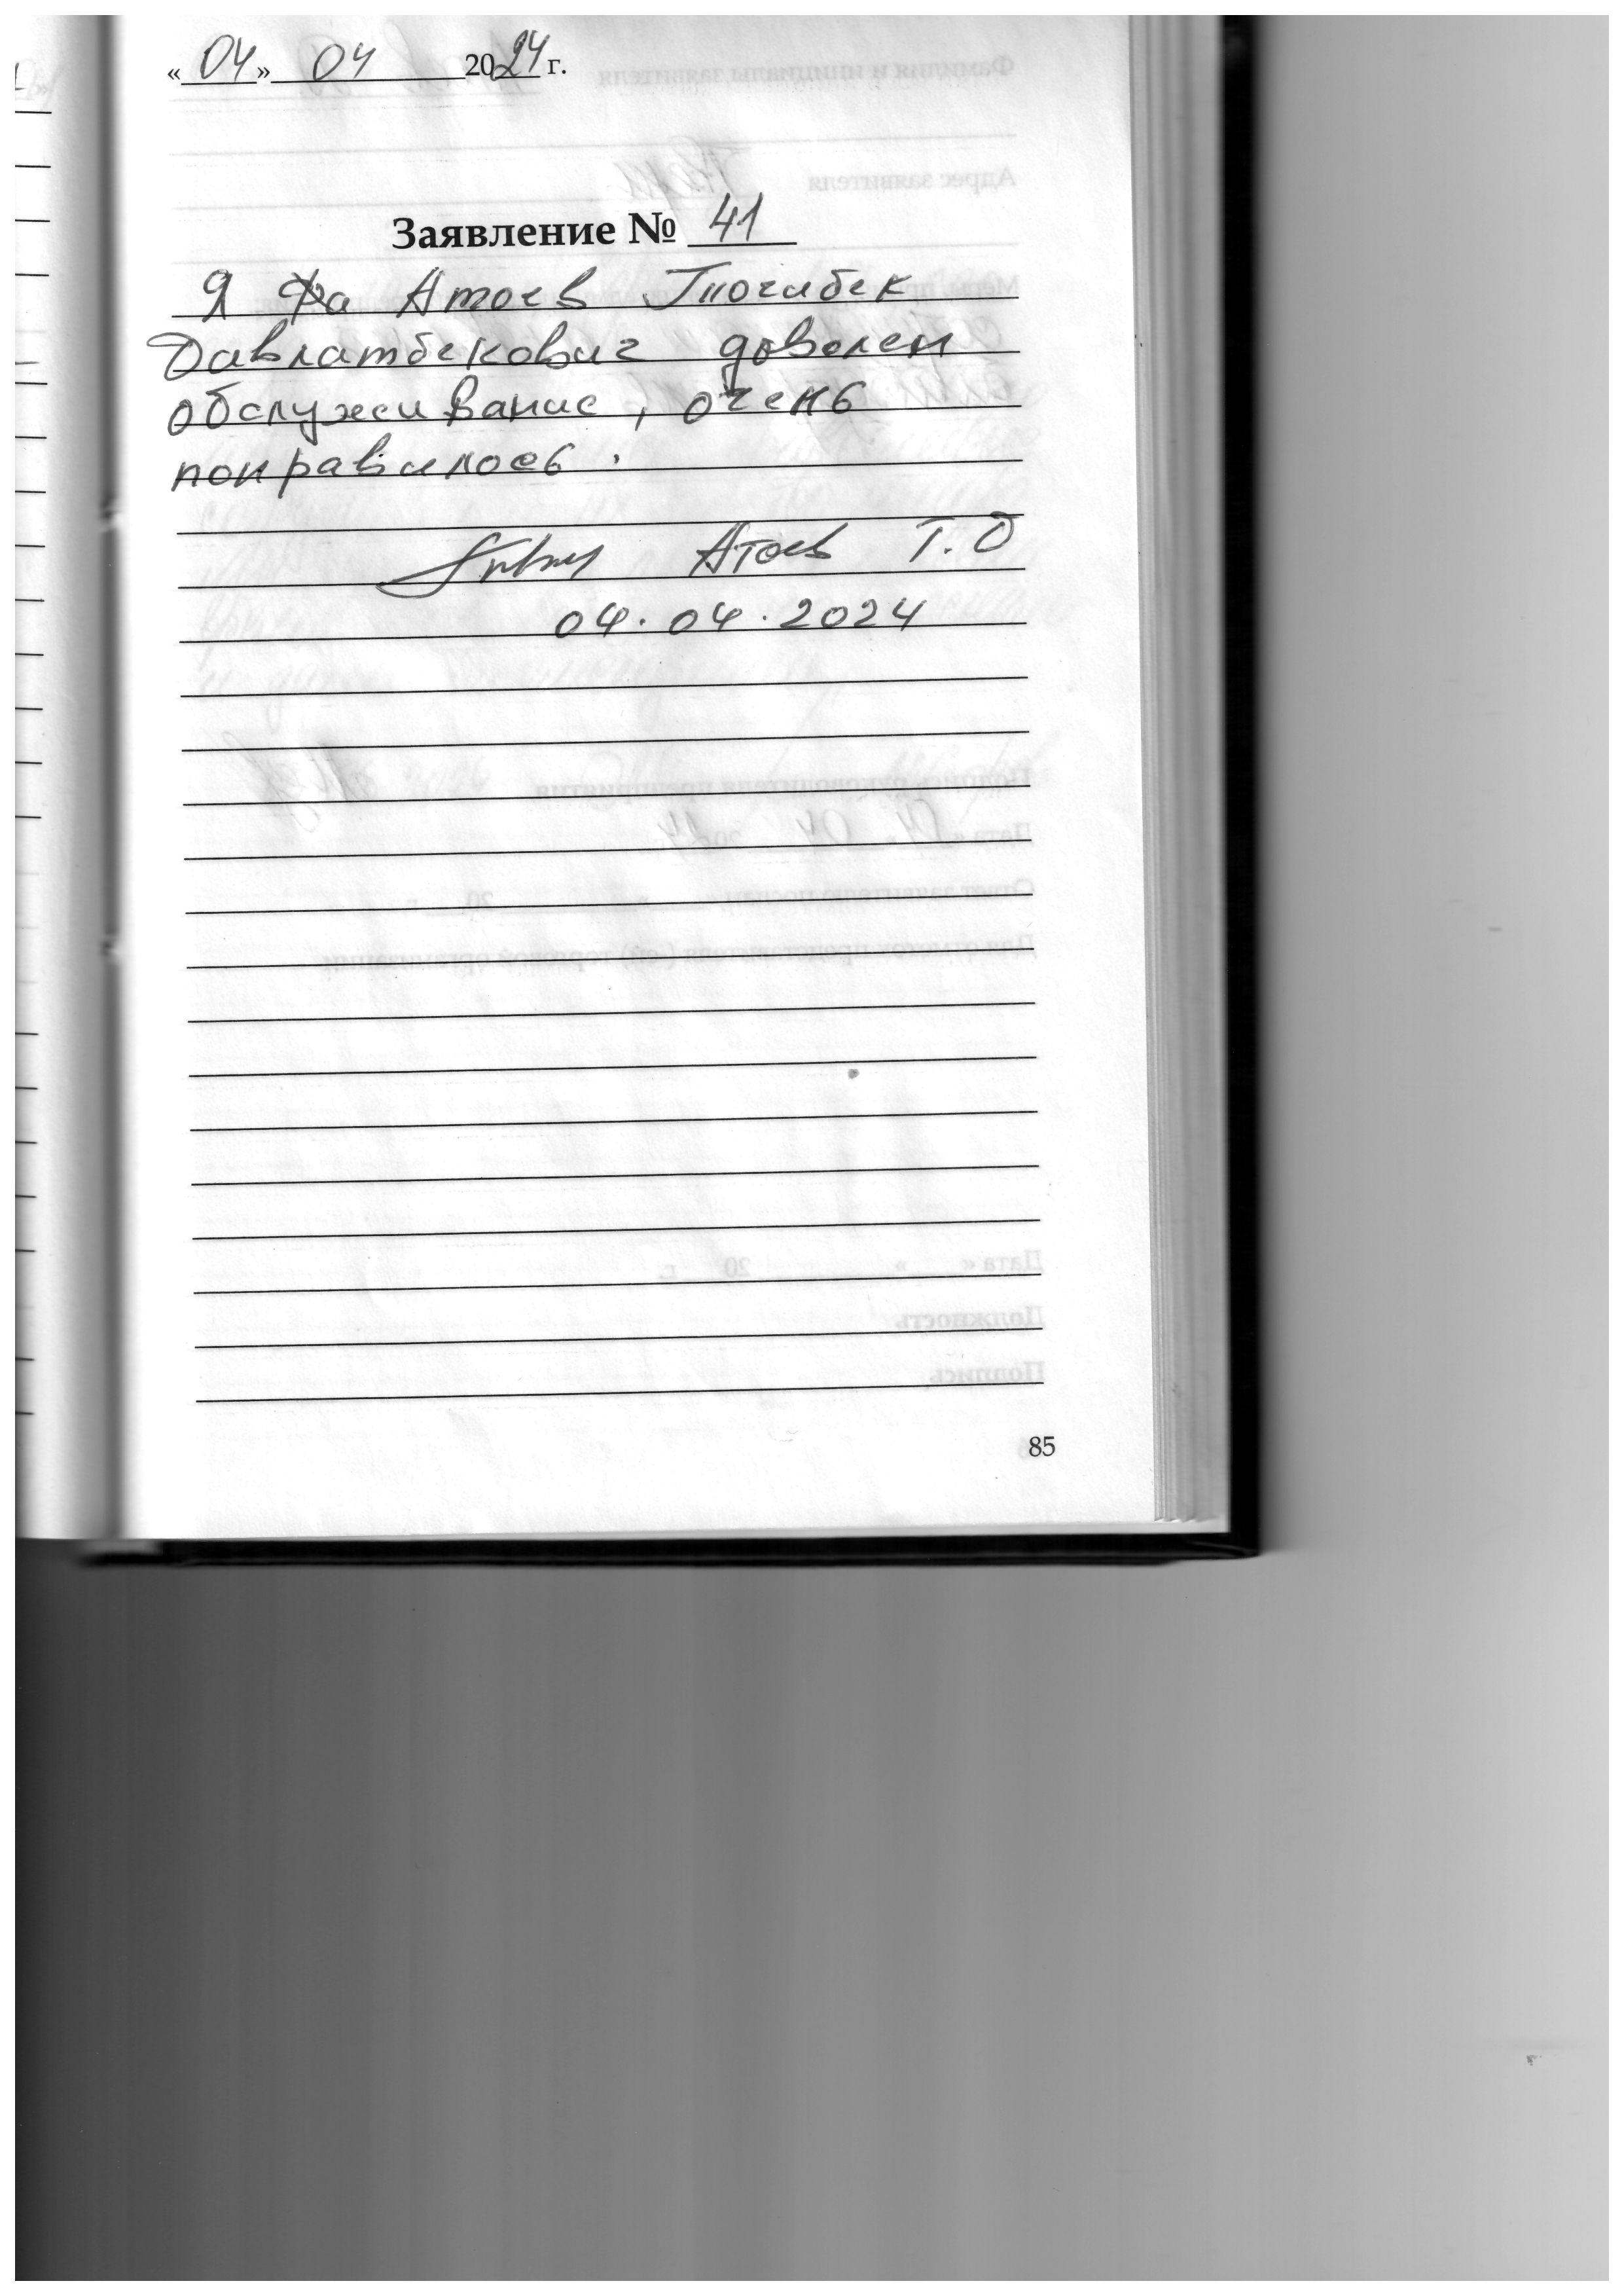 «04» 04 2024 г.
Заявление № 41
Я Атоев
Давлатбекович доволен
обслуживание, очень
понравилось.
Атоев Т.Д
04.04.2024
85